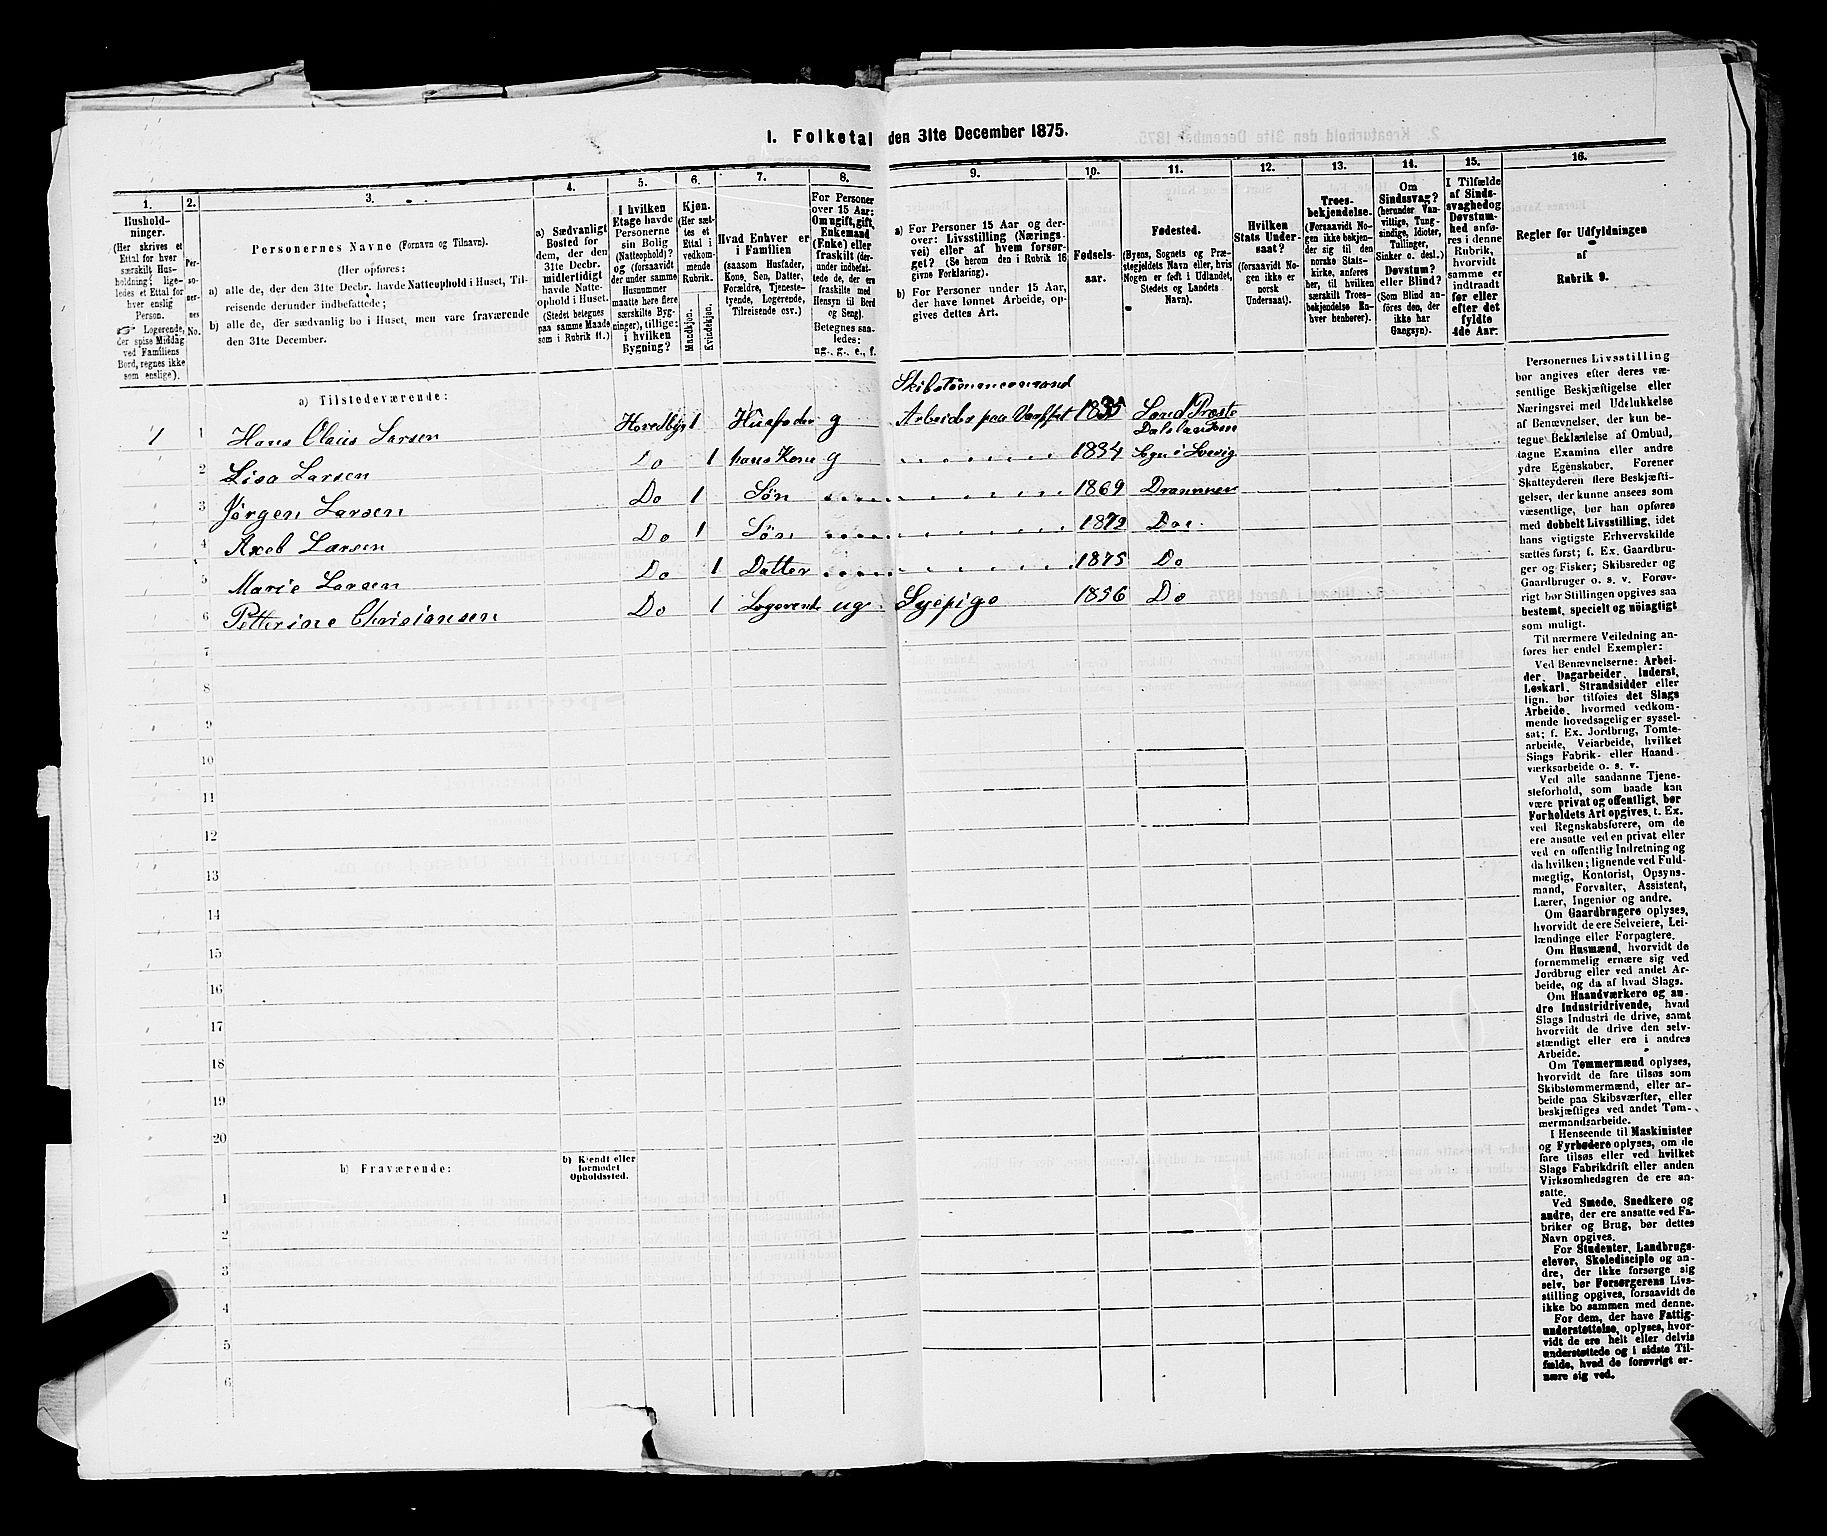 1. Folketal den 31te December 1875.
1.
Hushold-
ninger.
(Her skrives et
Ettal for hver
særskilt Hus-
holdning; lige-
ledes et Ettal for
hver enslig
Person.
Logerende,
der spise Middag
ved Familiens
Bord, regnes ikke
som enslige).
2.
Per-
so-
ner-
nes
No.
3.
Personernes Navne (Fornavn og Tilnavn).
(Her opføres:
a) alle de, der den 31te Decbr. havde Natteophold i Huset, Til-
reisende derunder indbefattede;
b) alle de, der sædvanlig bo i Huset, men vare fraværende
den 31te December.
4.
a) Sædvanligt
Bosted for
dem, der den
31te Decbr.
midlertidigt
havde Natte-
ophold i Huset.
(Stedet betegnes
paa samme Maade
som i Rubrik 11.)
5.
I hvilken
Etage havde
Personerne
sin Bolig
(Natteophold)?
og (forsaavidt
der under samme
Husnummer
maatte høre flere
særskilte Byg-
ninger), tillige:
i hvilken
Bygning?
6.
Kjøn.
(Her sæt-
tes et
Ettal i
vedkom-
mende
Rubrik.
Mandkjøn.
Kvindekjøn.
7.
Hvad Enhver er
i Familien
(saasom Husfader,
Kone, Søn, Datter,
Forældre, Tjeneste-
tyende, Logerende,
Tilreisende osv.)
8.
For Personer
over 15 Aar:
Om ugift, gift,
Enkemand
(Enke) eller
fraskilt (der-
under indbefat-
tede de, der ere
fraskilte med
Hensyn til Bord
og Seng).
Betegnes saa-
ledes:
ug., g., e., f.
9.
a) For Personer 15 Aar og der-
over: Livsstilling (Nærings-
vei) eller af hvem forsør-
get? (Se herom den i Rubrik 16
givne Forklaring).
b) For Personer under 15 Aar,
der have lønnet Arbeide, op-
gives dettes Art.
10.
Fødsels-
aar.
11.
Fødested.
(Byens, Sognets og Præ-
stegjeldets Navn eller, hvis
Nogen er født i Udlandet,
Stedets og Landets
Navn).
12.
Hvilken
Stats Under-
saat?
(forsaavidt No-
gen ikke er
norsk
Undersaat).
13.
Troes-
bekjendelse.
(Forsaavidt No-
gen ikke bekjen-
der sig til den
norske Stats-
kirke, anføres
her, til hvilken
særskilt Troes-
bekjendelse En-
hver henhører).
14.
Om
Sindssvag?
(herunder Van-
vittige, Tung-
sindige, Idioter,
Tullinger,
Sinker o. desl.)
Døvstum?
eller Blind?
(Som Blind an-
føres den, der
ikke har
Gangsyn).
15.
I Tilfælde
af Sinds-
svaghed og
Døvstum-
hed anfø-
res i denne
Rubrik,
hvorvidt
samme er
indtraadt
før eller
efter det
fyldte
4de Aar:
16.
Regler for Udfyldningen
af
Rubrik 9.
a) Tilstedeværende:
Skibstømmermand
1 1 Hans Olaus Larsen Hovedbyg 1 Husfader g Arbeider paa Værftet 1835
2 Lisa Larsen Do 1 hans Kone g 1834
3 Jørgen Larsen Do 1 Søn 1869 Drammen
4 Axel Larsen Do 1 Søn 1872 Do
5 Marie Larsen Do 1 Datter 1875 Do
6 Petterine Christiansen Do 1 Logerende ug Syepige 1856 Do
7
8
9
10
11
12
13
14
15
16
17
18
19
20
b) Fraværende:
b) Kjendt eller
formodet
Opholdssted.
1
2
3
4
5
6
Personernes Livsstilling
bør angives efter deres væ-
sentlige Beskjæftigelse eller
Næringsvei med Udelukkelse
af Benævnelser, der kun be-
tegne Beklædelse af Ombud,
tagne Examina eller andre
ydre Egenskaber. Forener
Skatteyderen flere Beskjæfti-
gelser, der kunne ansees som
væsentlige, bør han opføres
med dobbelt Livsstilling, idet
hans vigtigste Erhvervskilde
sættes først; f. Ex. Gaardbru-
ger og Fisker; Skibsreder og
Gaardbruger o. s. v. Forøv-
rigt bør Stillingen opgives saa
bestemt, specielt og nøiagtigt
som muligt.
Til nærmere Veiledning an-
føres her endel Exempler:
Ved Benævnelserne: Arbei-
der, Dagarbeider, Inderst,
Løskarl, Strandsidder eller
lign. bør tilføies det Slags
Arbeide, hvormed vedkom-
mende hovedsagelig er syssel-
sat; f. Ex. Jordbrug, Tomte-
arbeide, Veiarbeide, hvilket
Slags Fabrik- eller Haand-
værksarbeide o. s. v.
Ved alle saadanne Tjene-
steforhold, som baade kan
være privat og offentligt, bør
Forholdets Art opgives, t. Ex.
ved Regnskabsførere, om de
ere ansatte ved en privat eller
ved en offentlig Indretning og
da hvilken; lignende ved Fuld-
mægtig, Kontorist, Opsyns-
mand, Forvalter, Assistent,
Lærer, Ingeniør og andre.
Om Gaardbrugere oplyses,
hvorvidt de ere Selveiere, Lei-
lændinge eller Forpagtere.
Om Husmænd, hvorvidt de
fornemmelig ernære sig ved
Jordbrug eller ved andet Ar-
beide, og da af hvad Slags.
Om Haandværkere og an-
dre Industridrivende, hvad
Slags Industri de drive, samt
hvorvidt de drive den selv-
stændigt eller ere i andres
Arbeide.
Om Tømmermænd oplyses,
hvorvidt de fare tilsøs som
Skibstømmermænd, eller ar-
beide paa Skibsværfter, eller
beskjæftiges ved andet Tøm-
mermandsarbeide.
I Henseende til Maskinister
og Fyrbødere oplyses, om de
fare tilsøs eller ved hvilket
Slags Fabrikdrift eller anden
Virksomhedsgren de ere an-
satte.
Ved Smede, Snedkere og
andre, der ere ansatte ved Fa-
briker og Brug, bør dettes
Navn opgives.
For Studenter, Landbrugs-
elever, Skoledisciple og an-
dre, der ikke forsørge sig
selv, bør Forsørgerens Livs-
stilling opgives, forsaavidt de
ikke bo sammen med denne.
For dem, der have Fattig-
understøttelse, oplyses, hvor-
vidt de ere helt eller delvis
understøttede og i sidste Til-
fælde, hvad de forøvrigt er-
nære sig ved.